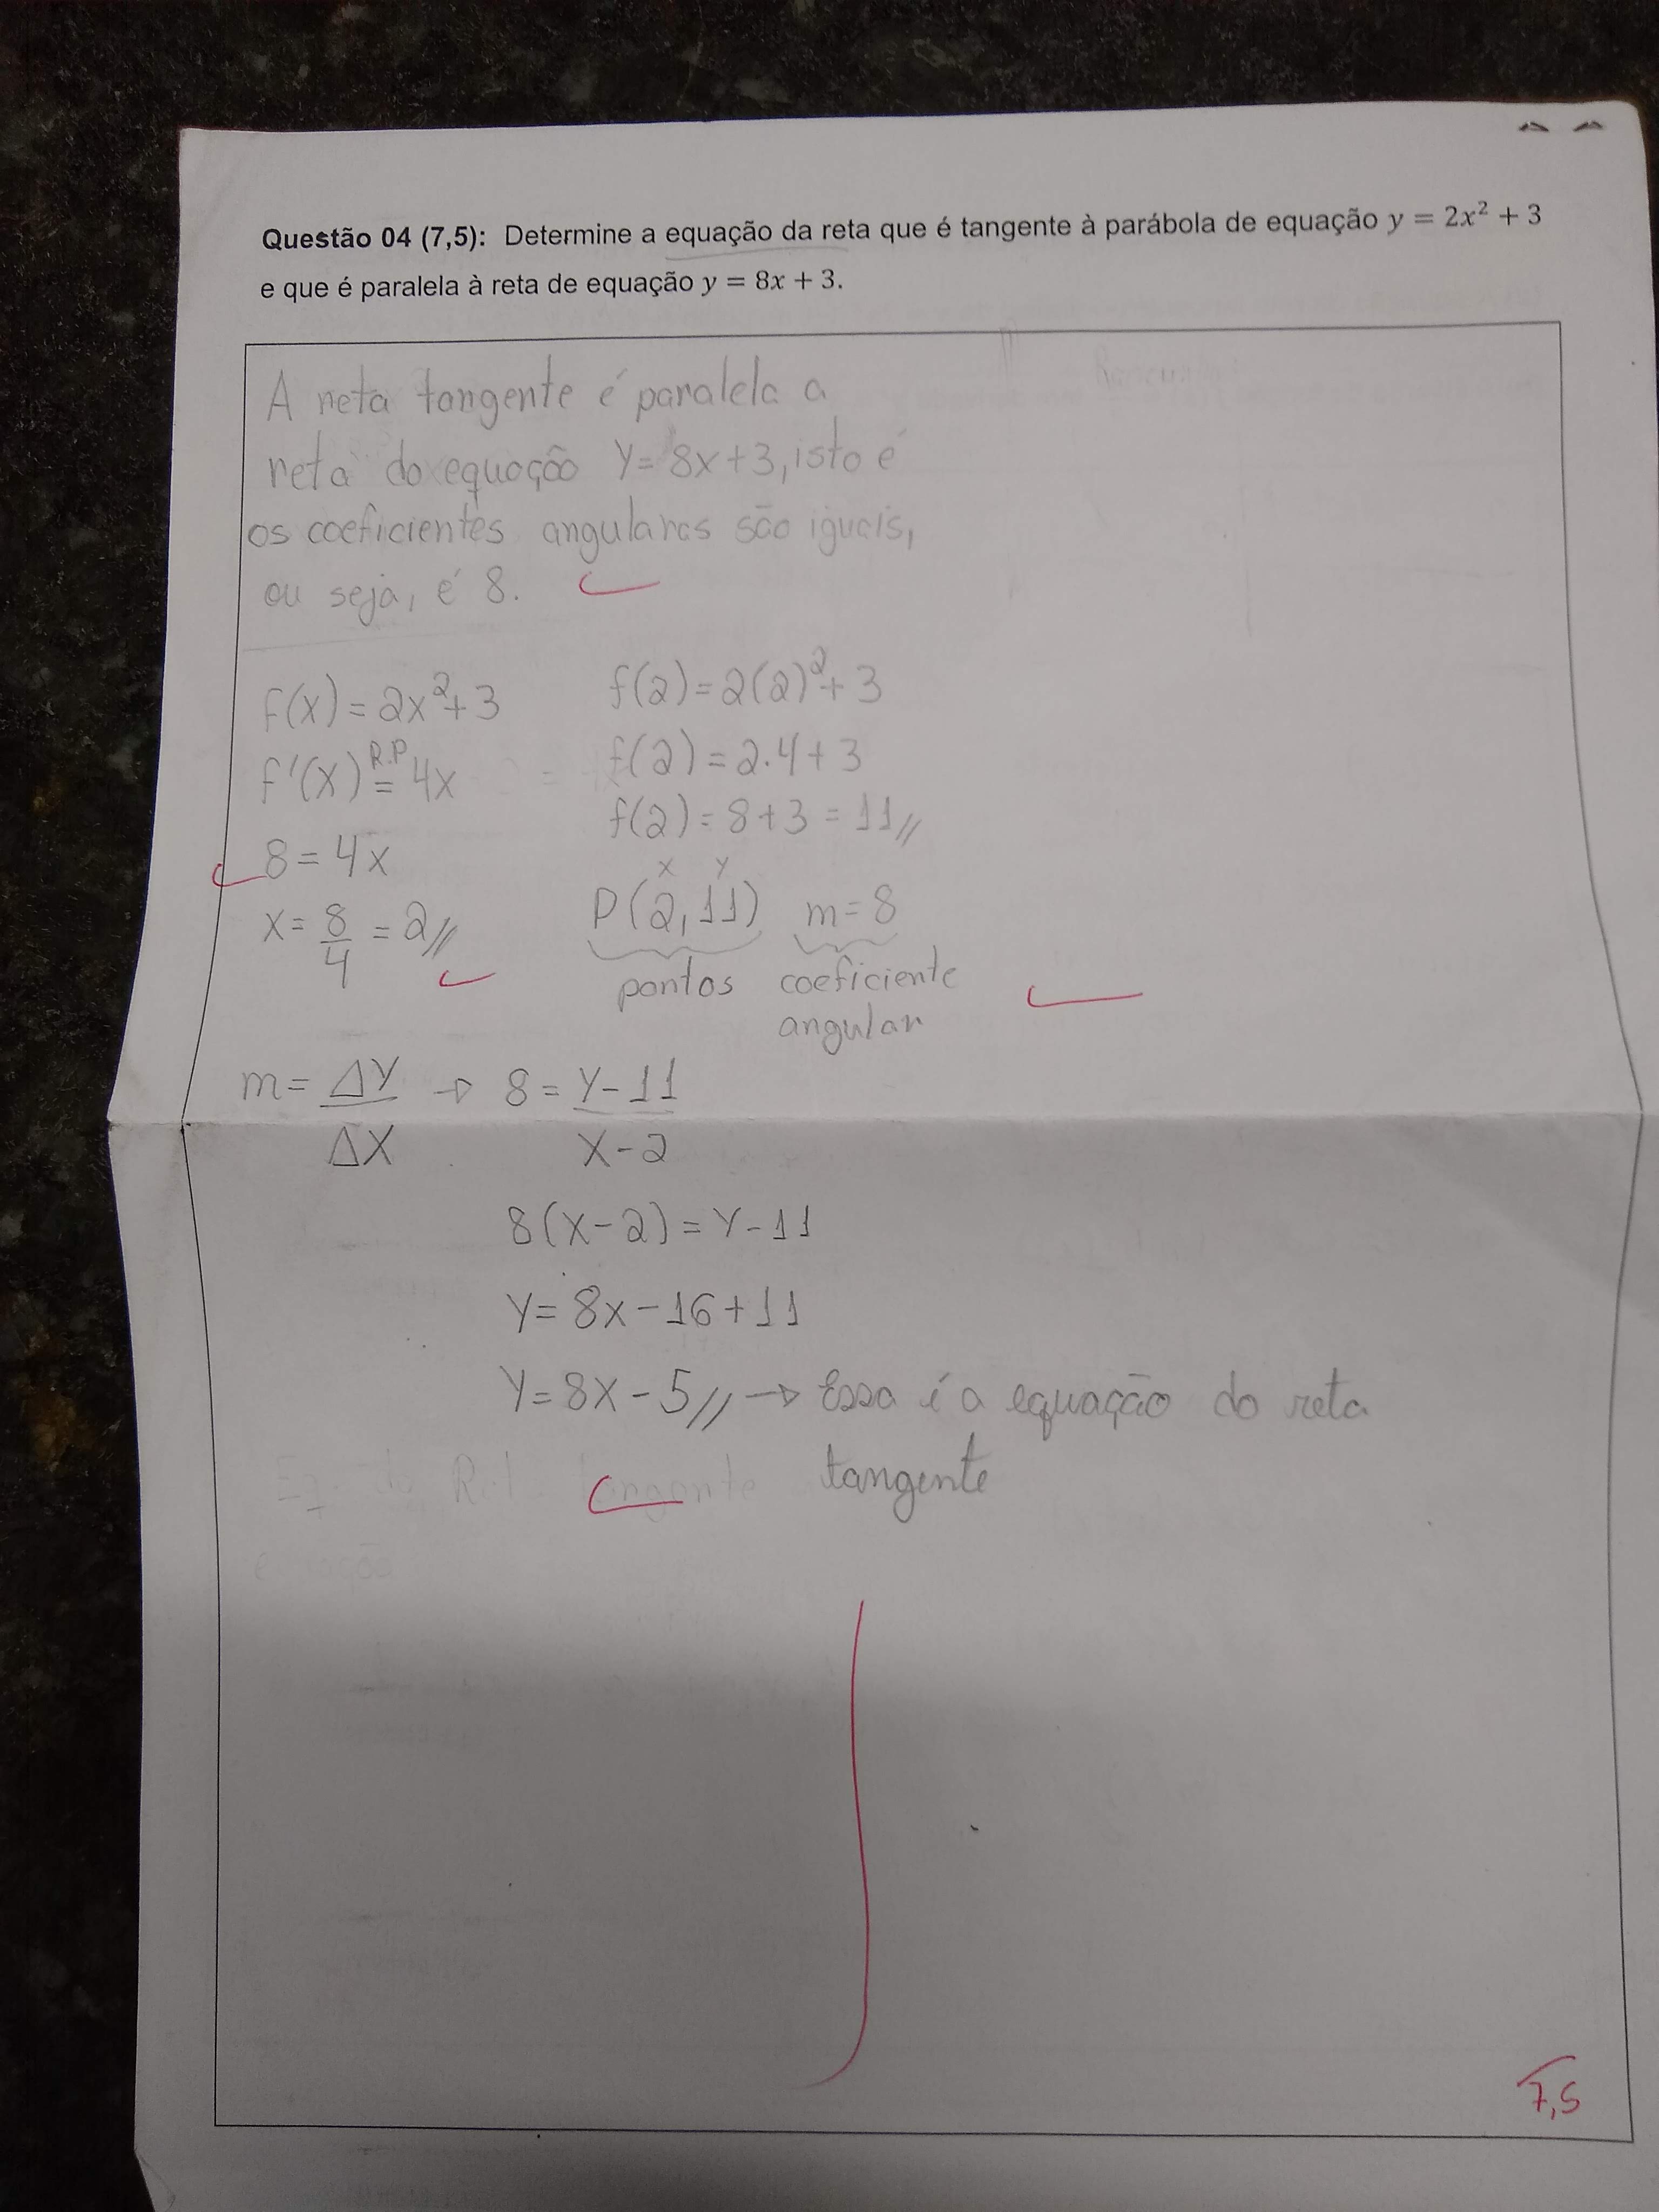 Questão 04 (7,5): Determine a equação da reta que é tangente à parábola de equação y = 2x² + 3
e que é paralela à reta de equação y = 8x + 3.
A reta tangente é paralela a
reta da equação Y= 8x+3, isto é
os coeficientes angulares são iguais,
ou seja, é 8.
f(x) = 2x²+3
f'(x) R.P = 4x
8 = 4x
x = 8/4 = 2//
f(2) = 2(2)²+3
f(2) = 2.4+3
f(2) = 8+3 = 11//
x y
P(2,11) m=8
pontos coeficiente
angular
m = ΔY/ΔX → 8 = Y-11/X-2
8(X-2) = Y-11
Y= 8x-16+11
Y= 8X-5// → Essa é a equação da reta
tangente
7,5